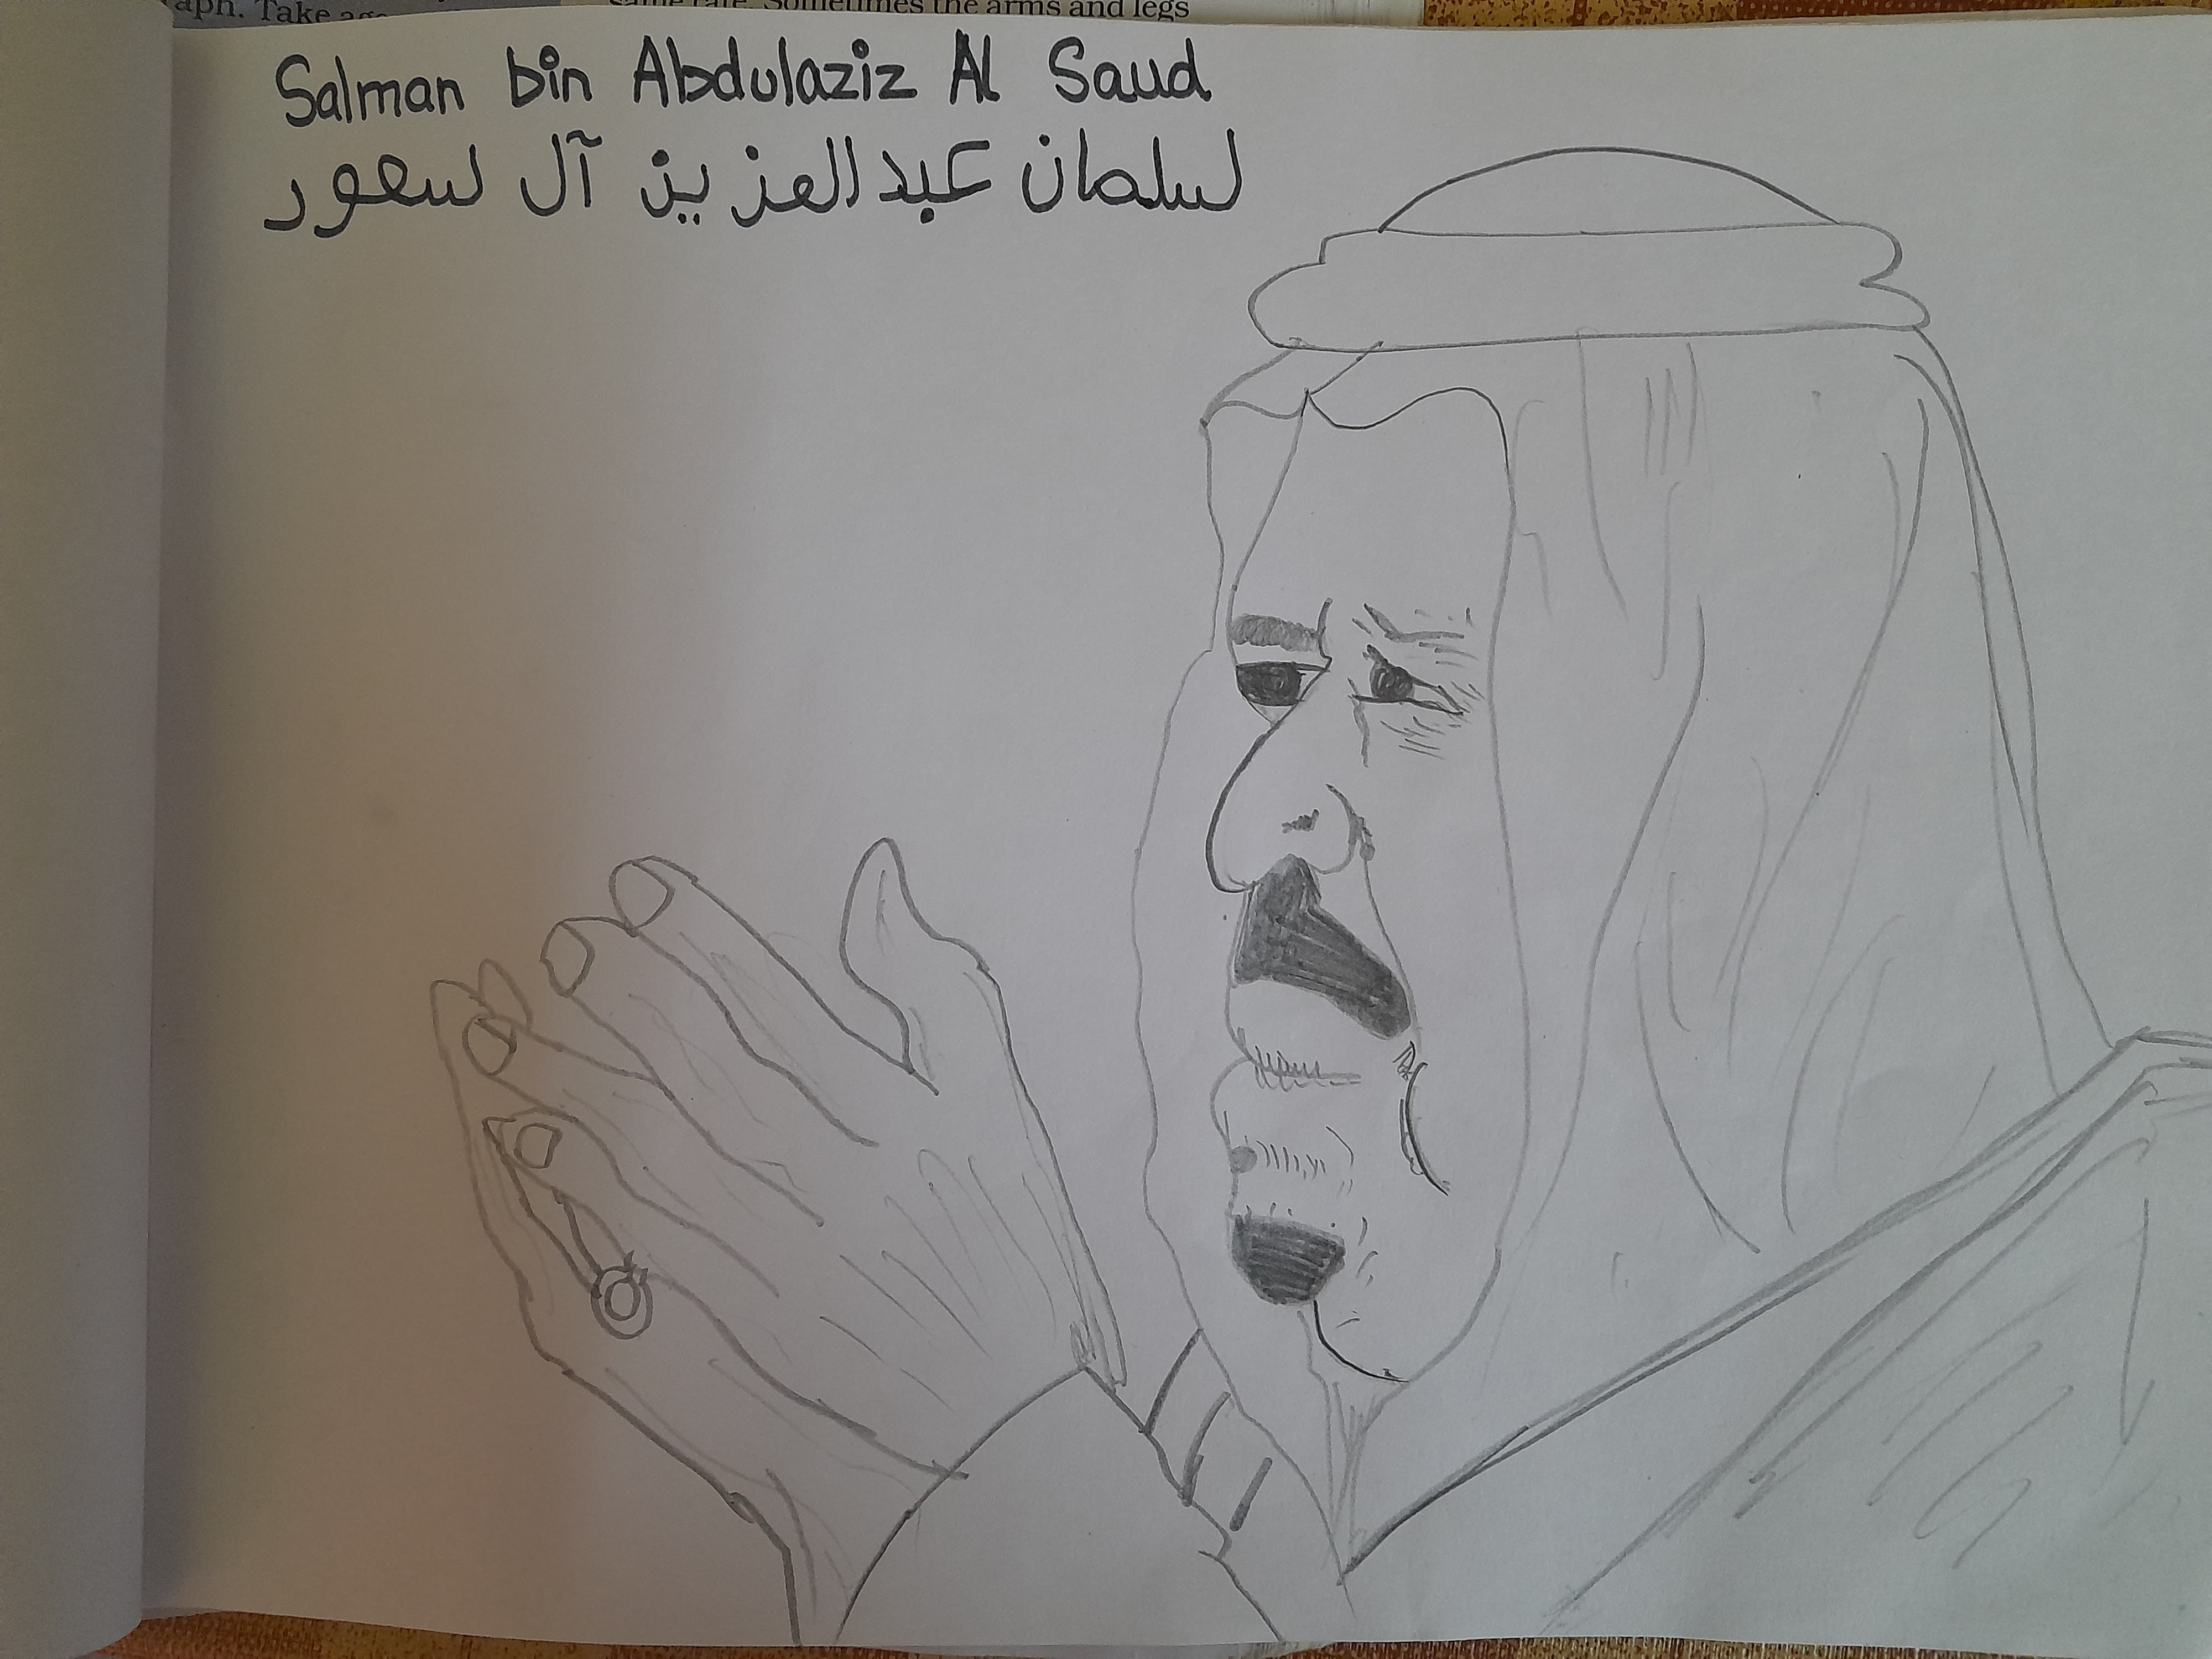 Take
same rate. Sometimes the arms and legs
Salman bin Abdulaziz Al Saud
سلمان عبد العزيز آل سعود